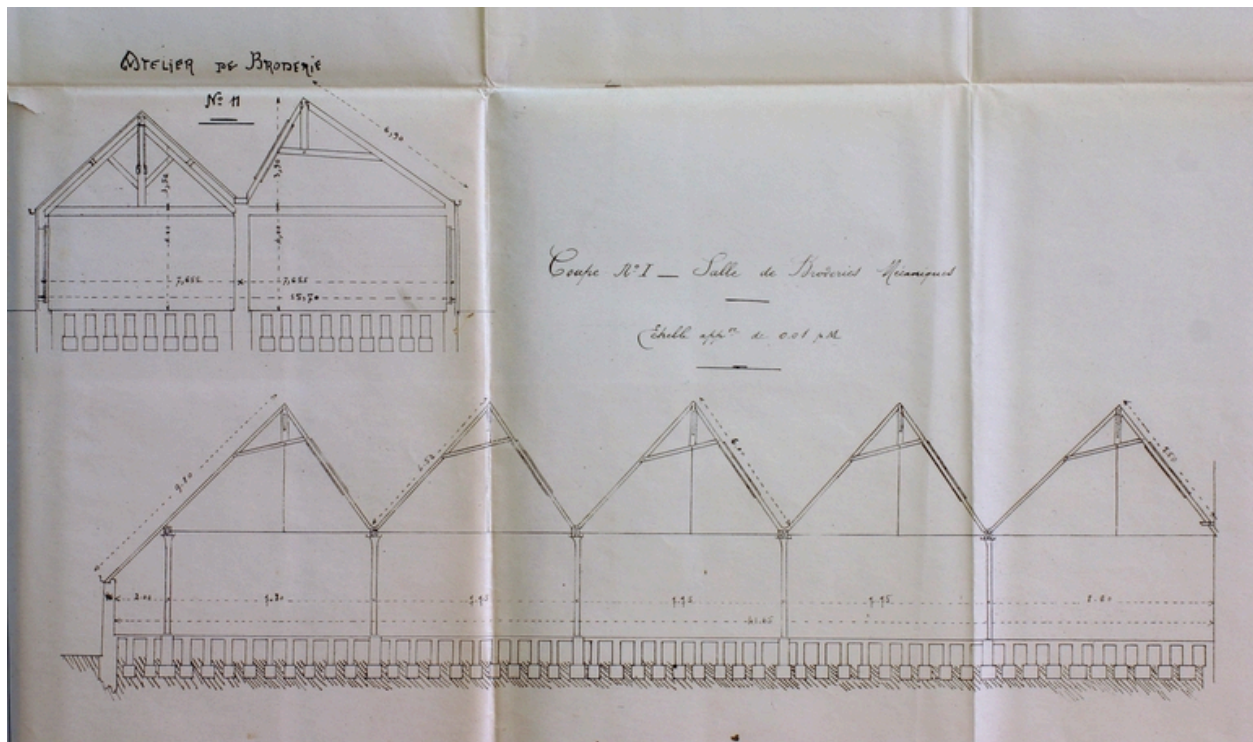 Atelier de Broderie
No 11
6,90
3,90
4,00
7,655
7,655
15,70
Coupe No I — Salle de Broderies Mécaniques
Echelle appve de 0.01 p.M
9.80
6.50
6.00
2.00
7.95
7.95
7.95
8.60
41.65